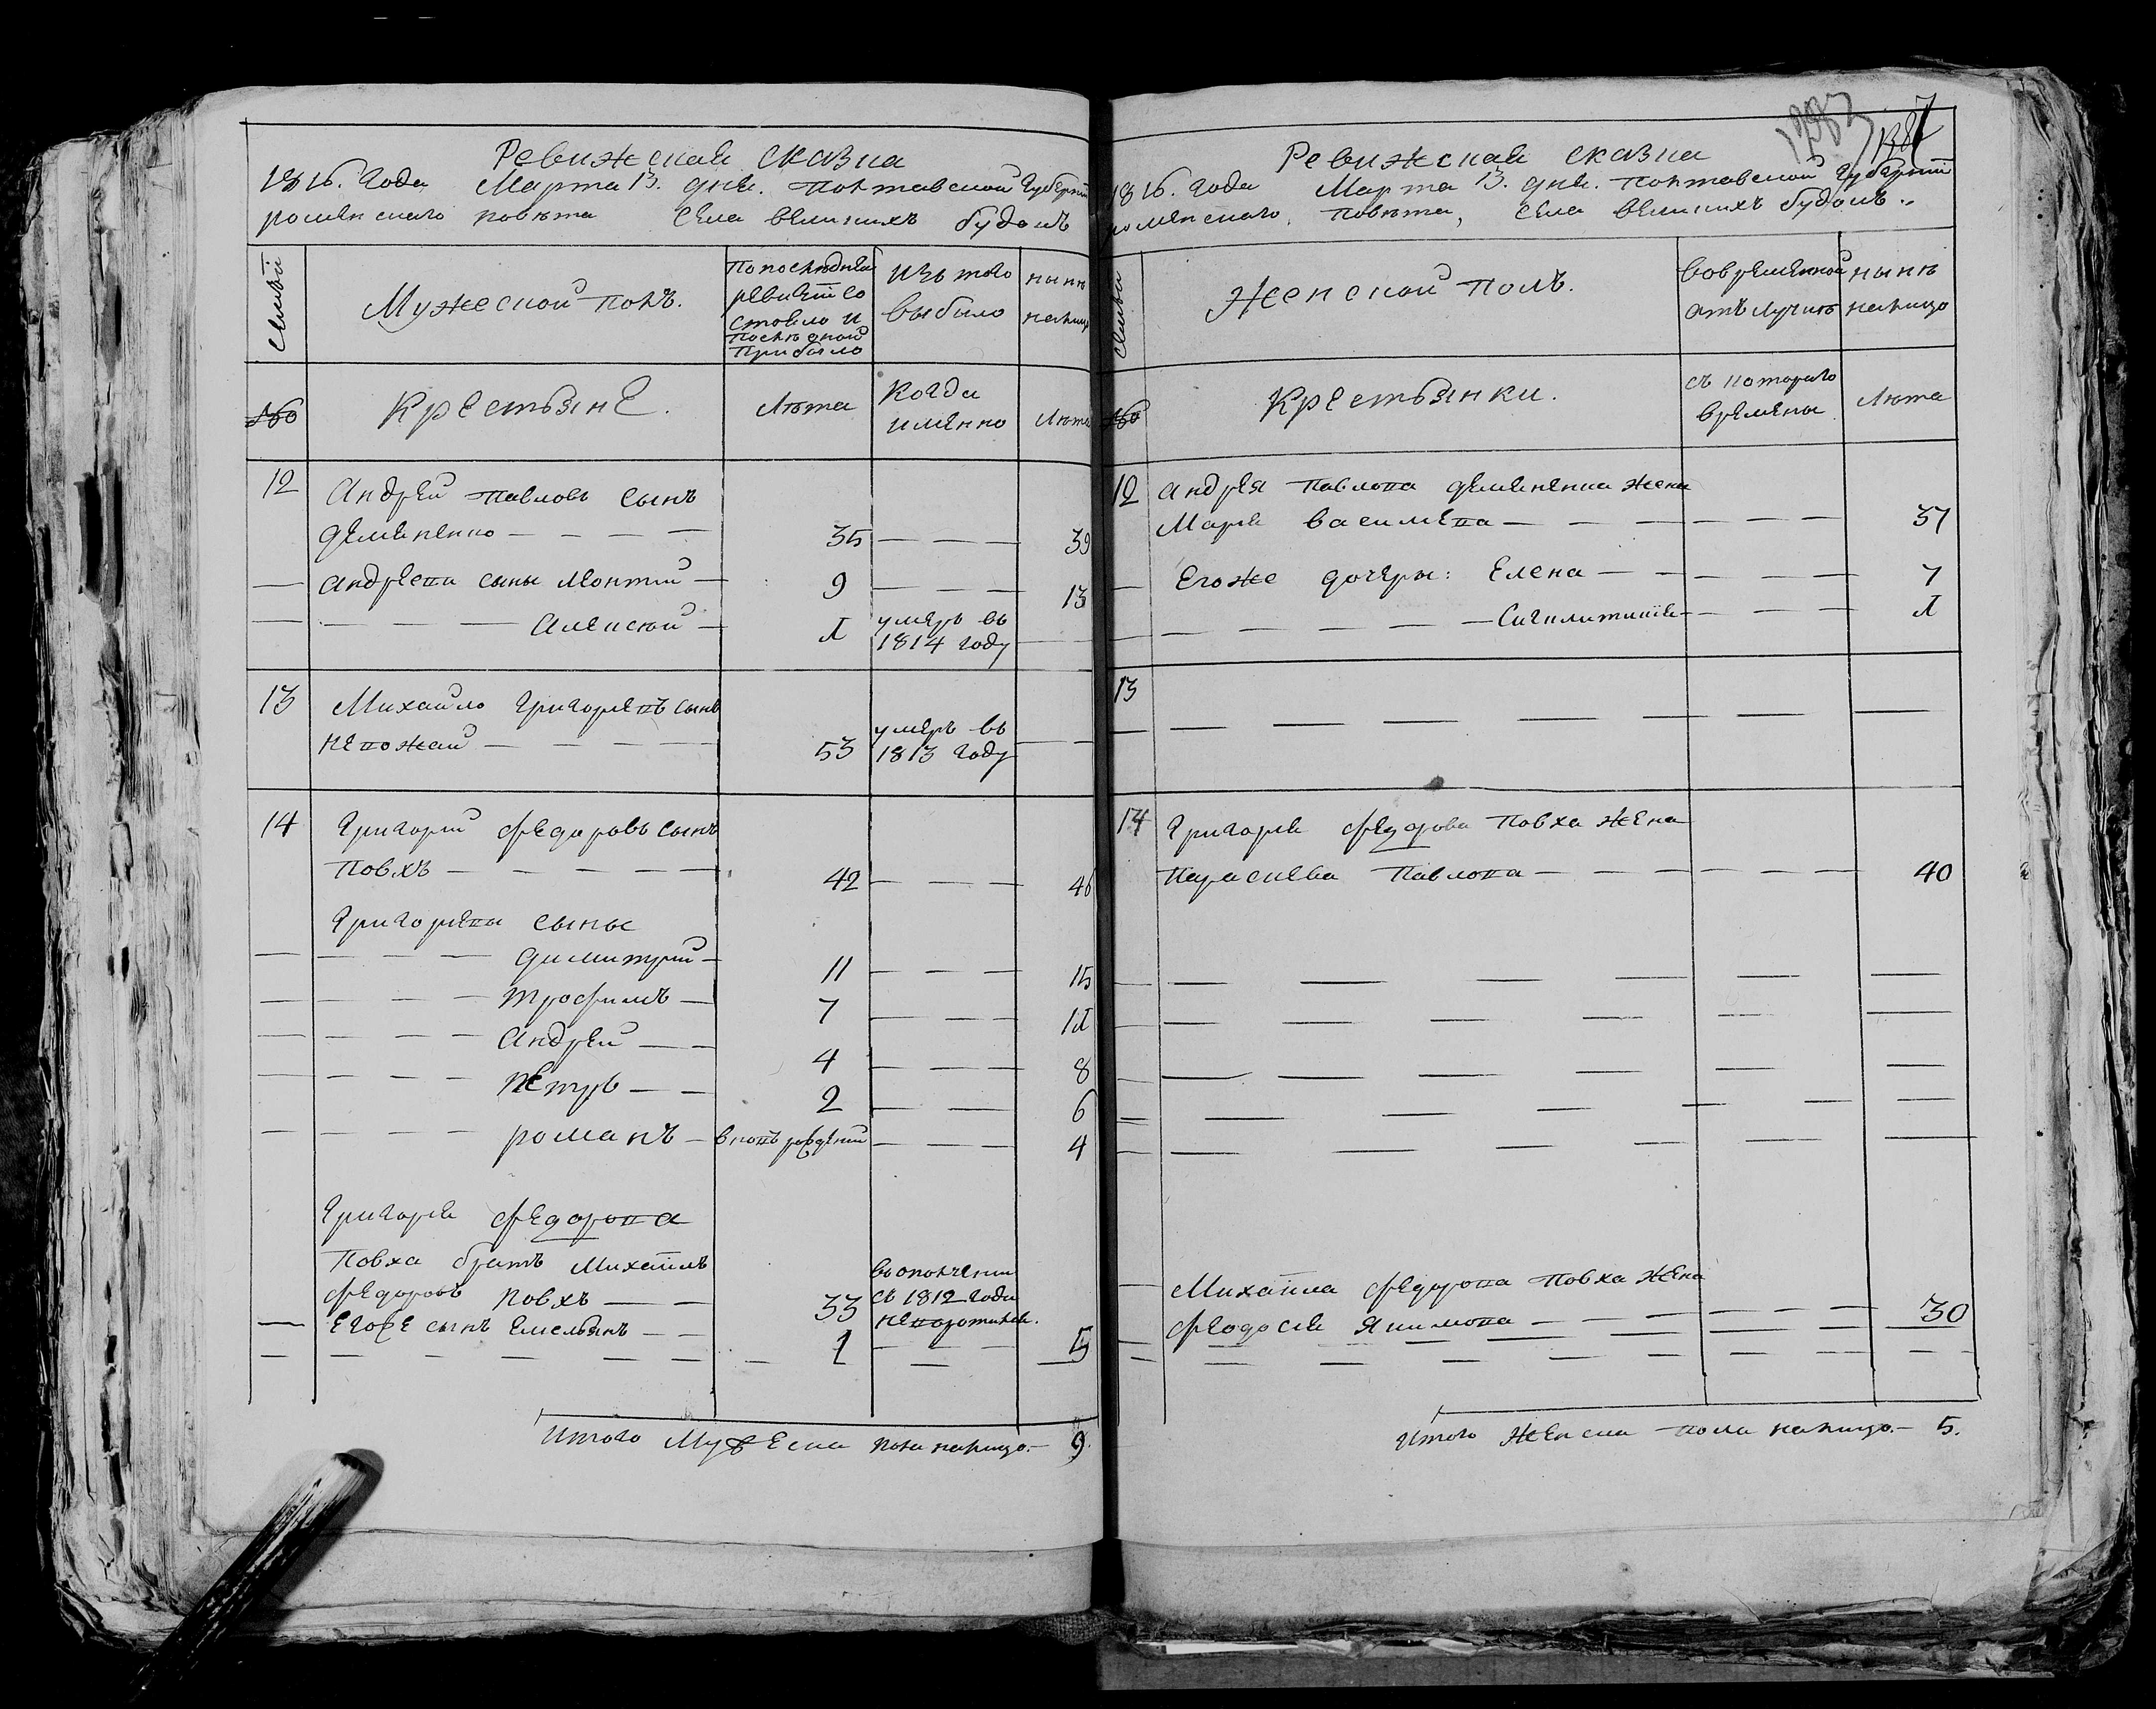 Ревижская сказка
1816. Года Марта 13. дня. Полтавской Губернии
роменского повѣта Села великихъ будокъ
семьи
Мужеской полъ.
По последней
ревизии со
стояло и
после оной
Прибыло
Изъ того
выбыло
нынѣ
налицо
№
Крестьяне.
Лѣта
Когда
именно
Лѣта
12 Андрей Павловъ сынъ
Демененко — — — — 35 — — — 39
— Андреева сыны Леонтий — 9 — — — 13
— — — — Алексей — 1 умеръ въ
1814 году —
13 Михайло Григорьевъ сынъ
непожай — — — — 53 умеръ въ
1813 году —
14 Григорий Федоровъ сынъ
Повхъ — — — — — 42 — — — 46
Григорьевы сыны
— — — — Димитрий — 11 — — — 15
— — — — Трофимъ — 7 — — — 11
— — — — Андрей — — 4 — — — 8
— — — — Петръ — — 2 — — — 6
— — — — романъ — вновь рожденный — — — 4
Григория Федорова
Повха братъ Михаилъ
Федоровъ Повхъ — — 33 въ ополчении
съ 1812 года
невороти́лся.
— Егоже сынъ Емельянъ — — 1 — — — 5
Итого Мужеска пола налицо. — 9.
1387
Ревижская сказка
1816. Года Марта 13. дня. Полтавской Губернии
роменского, Повѣта, Села великихъ будокъ.
семьи
Женской полъ.
Вовременной
отлучкѣ
нынѣ
налицо
№
Крестьянки.
съ котораго
времены
Лѣта
12 Андрея Павлова Демененка жена
Марья васильева — — — — — — 37
— Егоже дочеры: Елена — — — — — 7
— — — — — — — Сигклитикия — — — — 1
13
— — — — — — — —
14 Григория Федорова Повха жена
Параскева Павлова — — — — — — 40
— Михаила Федорова Повха жена
Феодосия Якимова — — — — — 30
Итого Женска пола налицо. — 5.